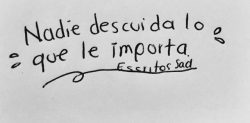 Nadie descuida lo
que le importa.
Escritos Sad